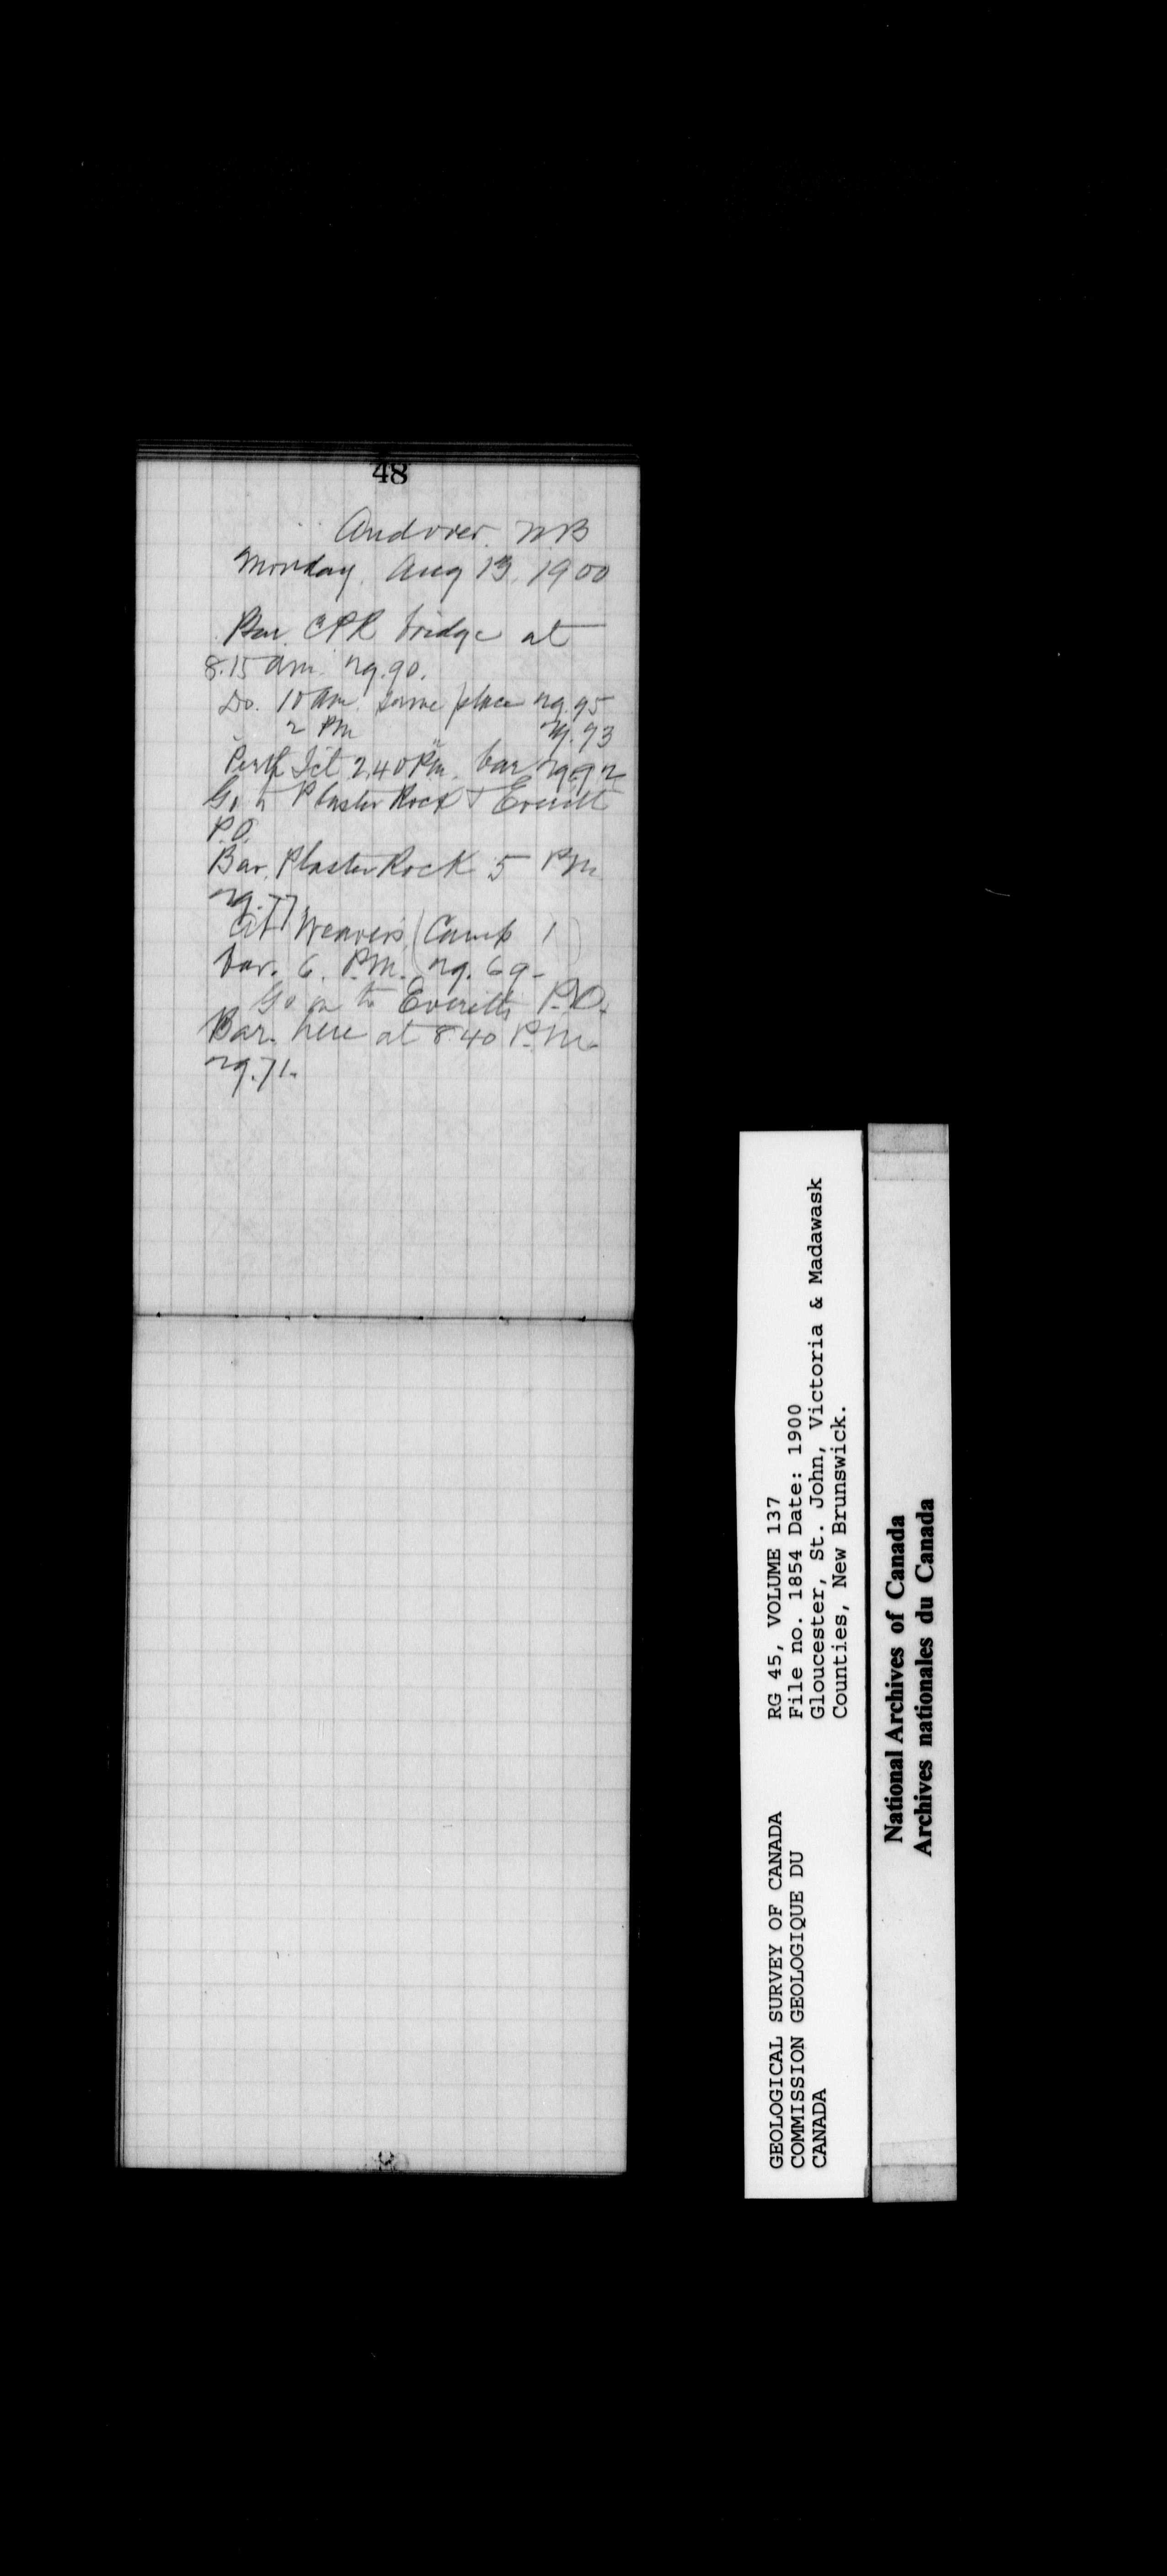 48
Andover. NB
Monday. Aug 13, 1900
Bar. CPR bridge at
8.15 am. 29.90.
Do. 10 am. same place 29.95
" 2 PM " 29.93
Perth Jct 2.40 PM. bar 29.92
Go to Plaster Rock & Everitt
P.O.
Bar. Plaster Rock 5 PM
29.77.
At Weavers (Camp 1)
bar. 6. P.M. 29.69-
Go on to Everitts P.O.
Bar. here at 8.40 P.M.
29.71.
GEOLOGICAL SURVEY OF CANADA
COMMISSION GEOLOGIQUE DU
CANADA
RG 45, VOLUME 137
File no. 1854 Date: 1900
Gloucester, St. John, Victoria & Madawask
Counties, New Brunswick.
National Archives of Canada
Archives nationales du Canada